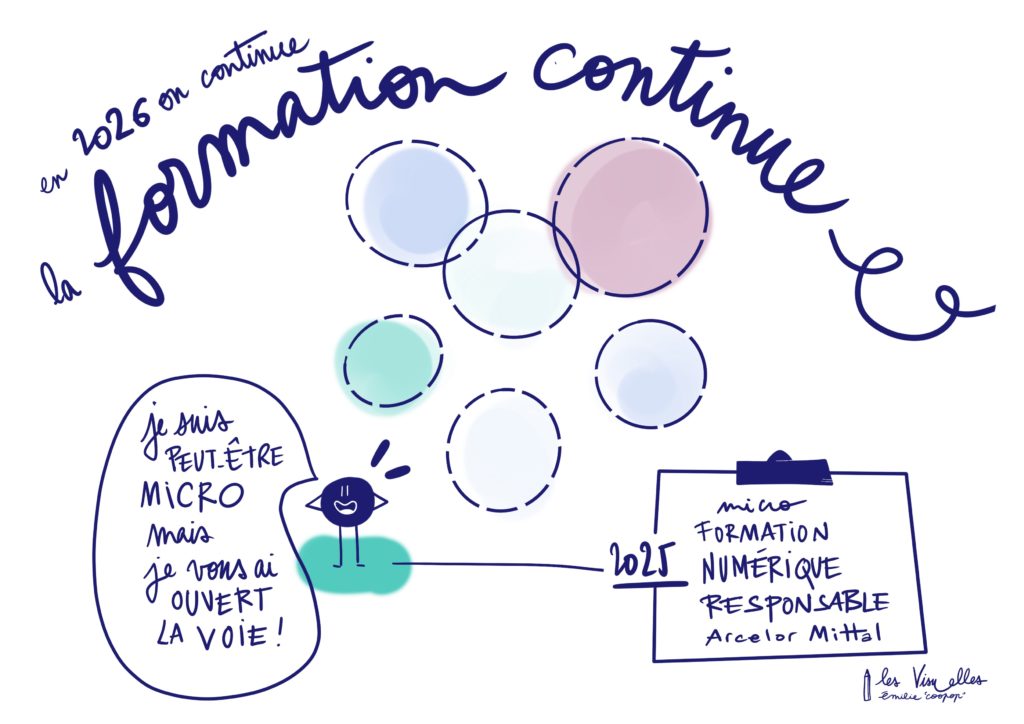 en 2026 on continue
la formation continue
je suis
PEUT-ÊTRE
MICRO
mais
je vous ai
OUVERT
LA VOIE !
2025
micro
FORMATION
NUMÉRIQUE
RESPONSABLE
Arcelor Mittal
les Visuelles
Émilie "coopop"